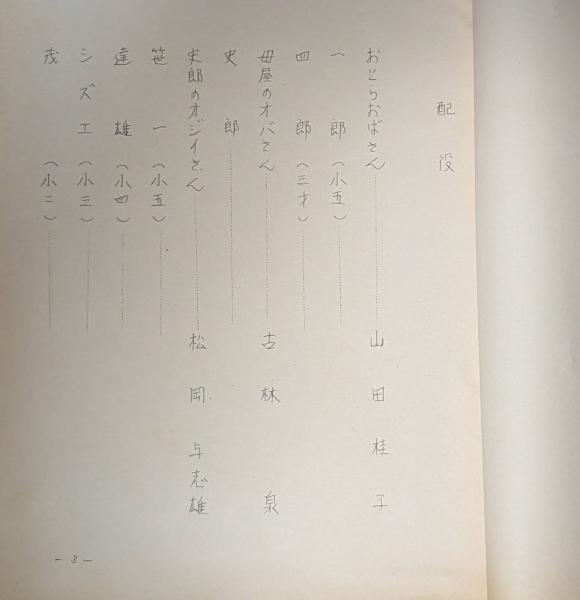 配役
おとらおばさん…………山田桂子
一郎（小五）…………
四郎（三才）…………
母屋のオバさん…………古林泉
史郎…………
史郎のオジイさん…………松岡与志雄
笹一（小五）…………
達雄（小四）…………
シズエ（小三）…………
茂（小二）…………
－3－